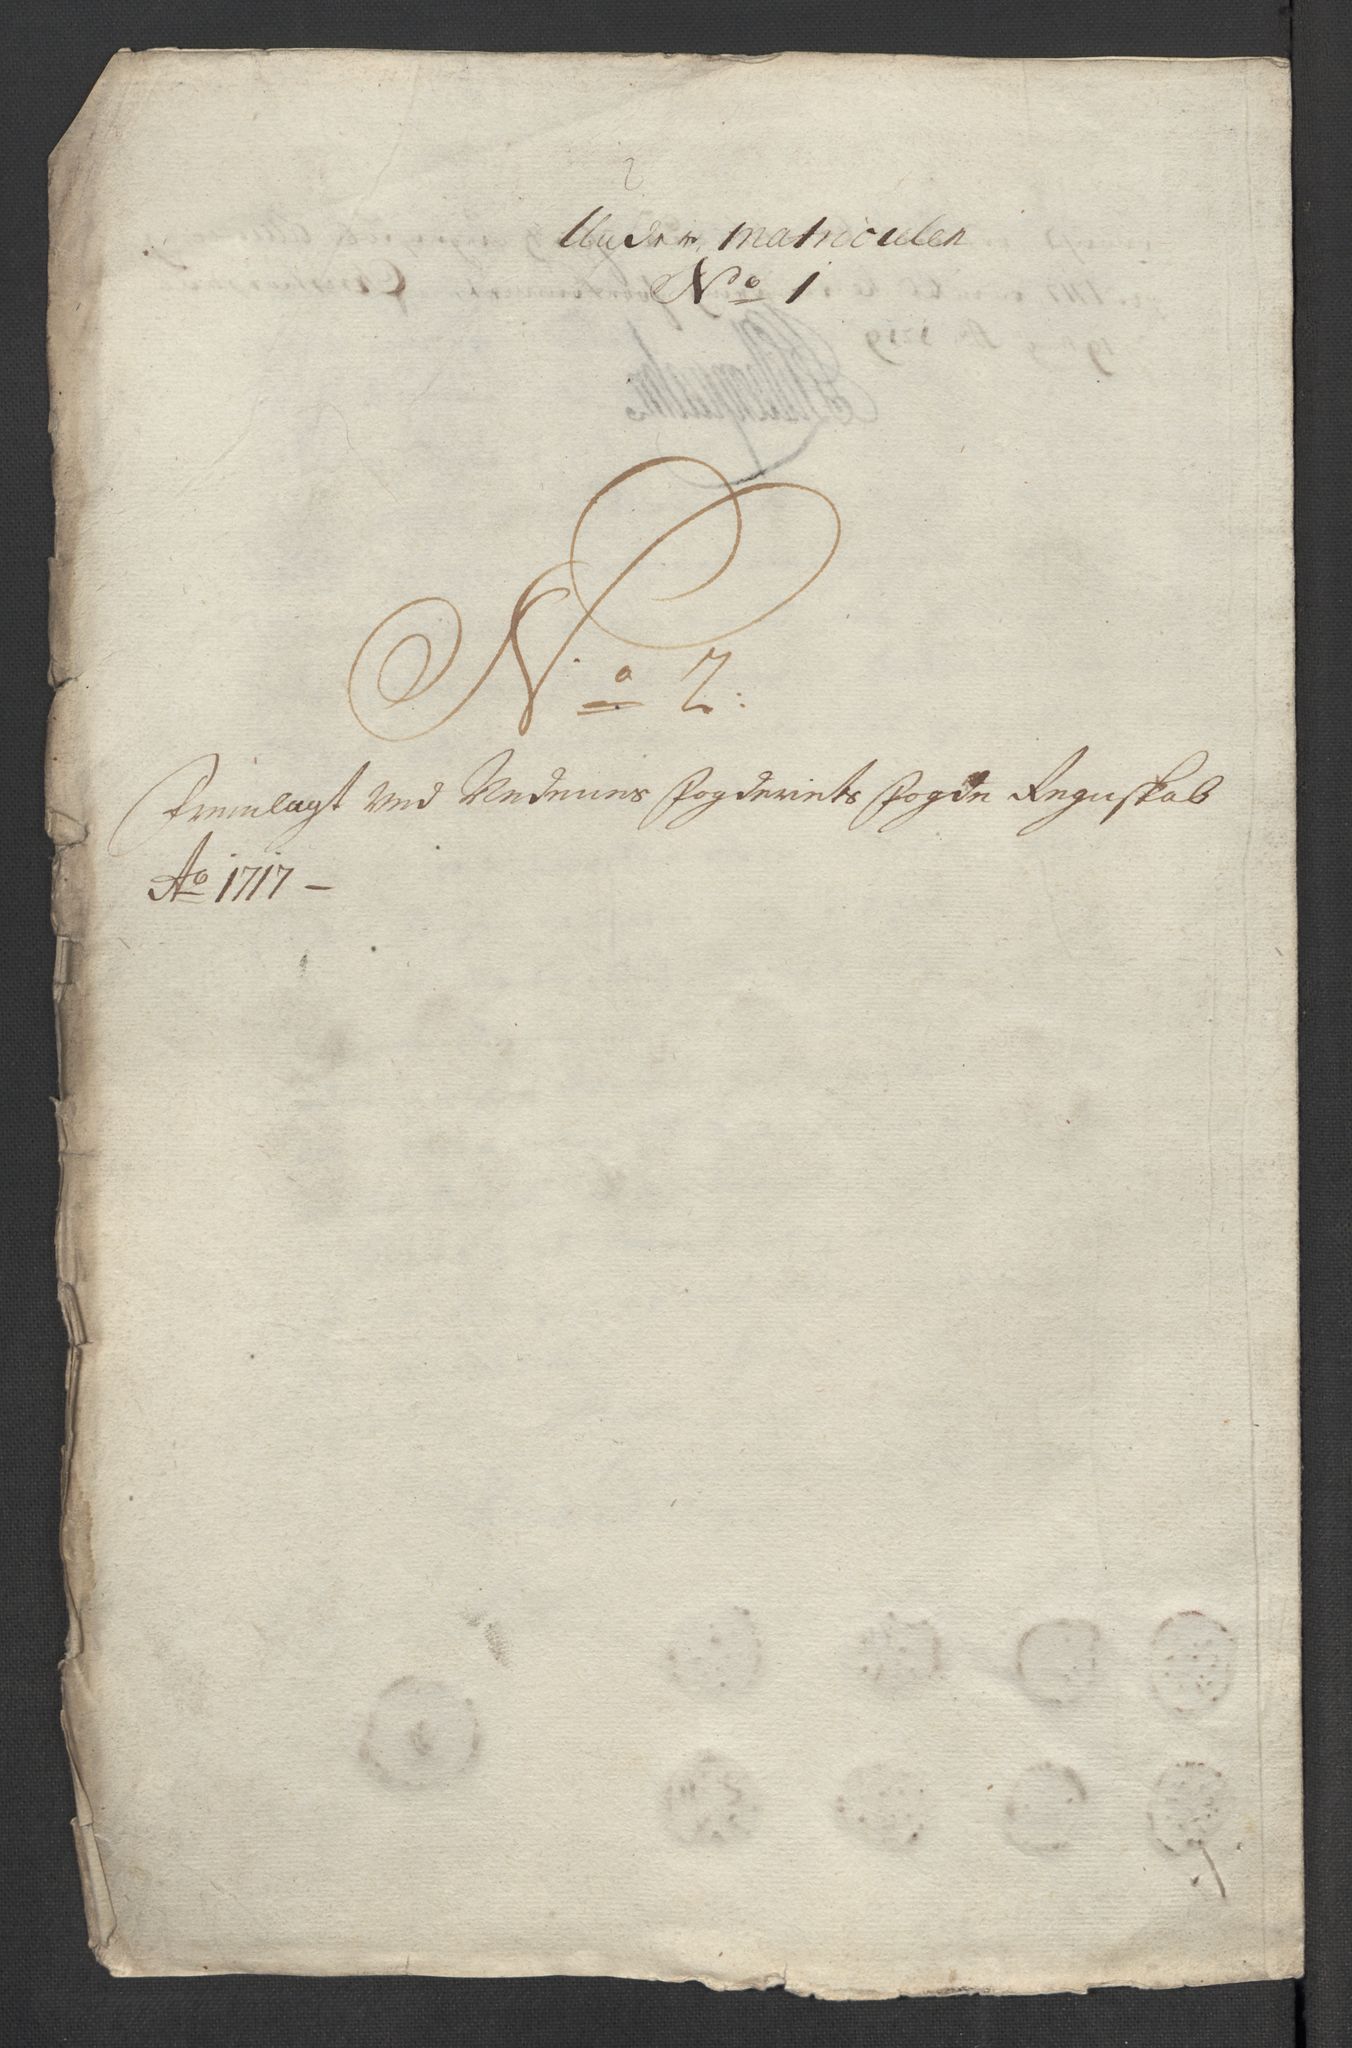 Under matriculen
No 1
No 2:
Fremlagt ved Nedenes fogderiets fogde Regnskab
Ao 1717 –